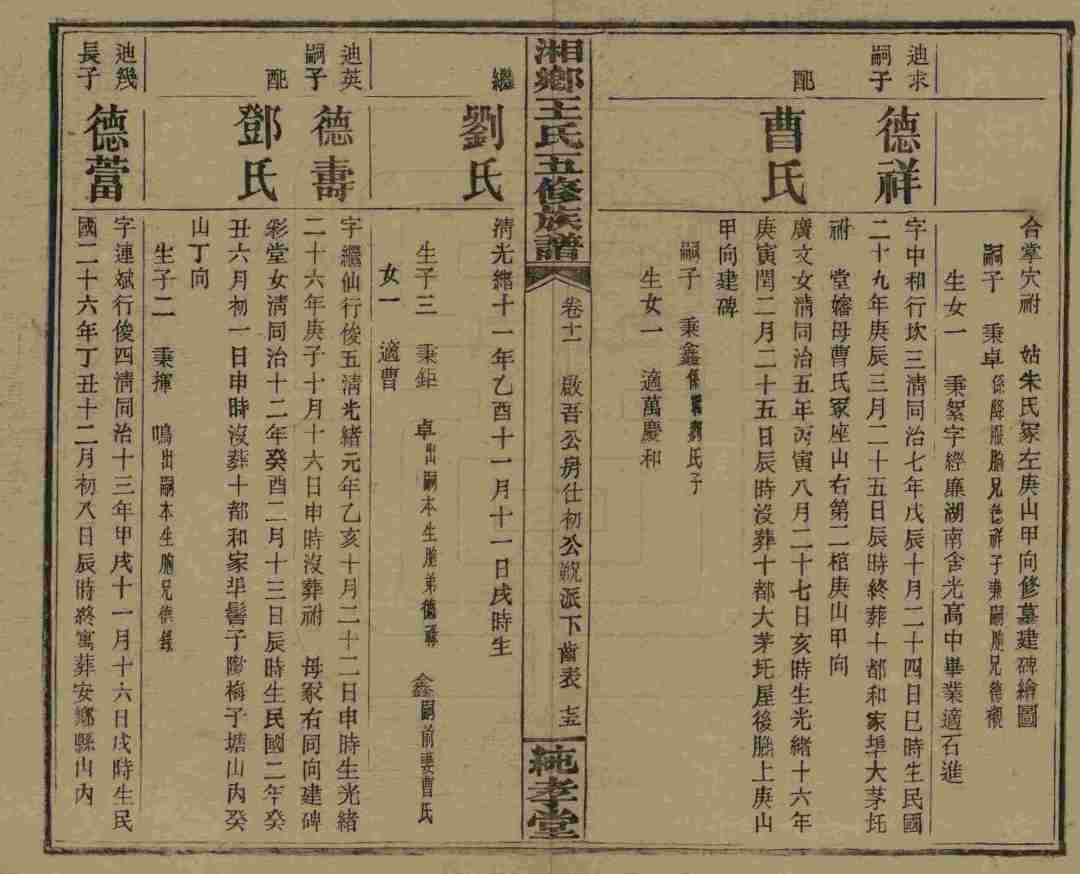 合掌穴祔　姑朱氏冢左庚山甲向修墓建碑繪圖
嗣子　秉卓係降服胞兄德祥子兼嗣胞兄德
生女一　秉絮字經廉湖南含光高中畢業適石進
迪求
嗣子
德祥
字中和行坎三清同治七年戊辰十月二十四日巳時生民國
二十九年庚辰三月二十五日辰時終葬十都和家埠大茅圫
祔　堂嬸母曹氏冢座山右第二棺庚山甲向
配
曹氏
廣文女清同治五年丙寅八月二十七日亥時生光緒十六年
庚寅閏二月二十五日辰時沒葬十都大茅圫屋後膽上庚山
甲向建碑
嗣子　秉鑫係繼劉氏子
生女一　適萬慶和
湘鄉王氏五修族譜
卷十一　啟吾公房仕初公䙷派下齒表　七五
純孝堂
繼
劉氏
清光緒十一年乙酉十一月十一日戌時生
生子三　秉鉅　卓出嗣本生胞弟德　鑫嗣前妻曹氏
女一　適曹
迪英
嗣子
德壽
字繼仙行俊五清光緒元年乙亥十月二十二日申時生光緒
二十六年庚子十月十六日申時沒葬祔　母冢右同向建碑
配
鄧氏
彩堂女清同治十二年癸酉二月十三日辰時生民國二年癸
丑六月初一日申時沒葬十都和家埠髻子坳梅子塘山丙癸
山丁向
生子二　秉揮　鳴出嗣本生胞兄德
迪幾
長子
德蓄
字連斌行俊四清同治十三年甲戌十一月十六日戌時生民
國二十六年丁丑十二月初八日辰時終寓葬安鄉縣山內